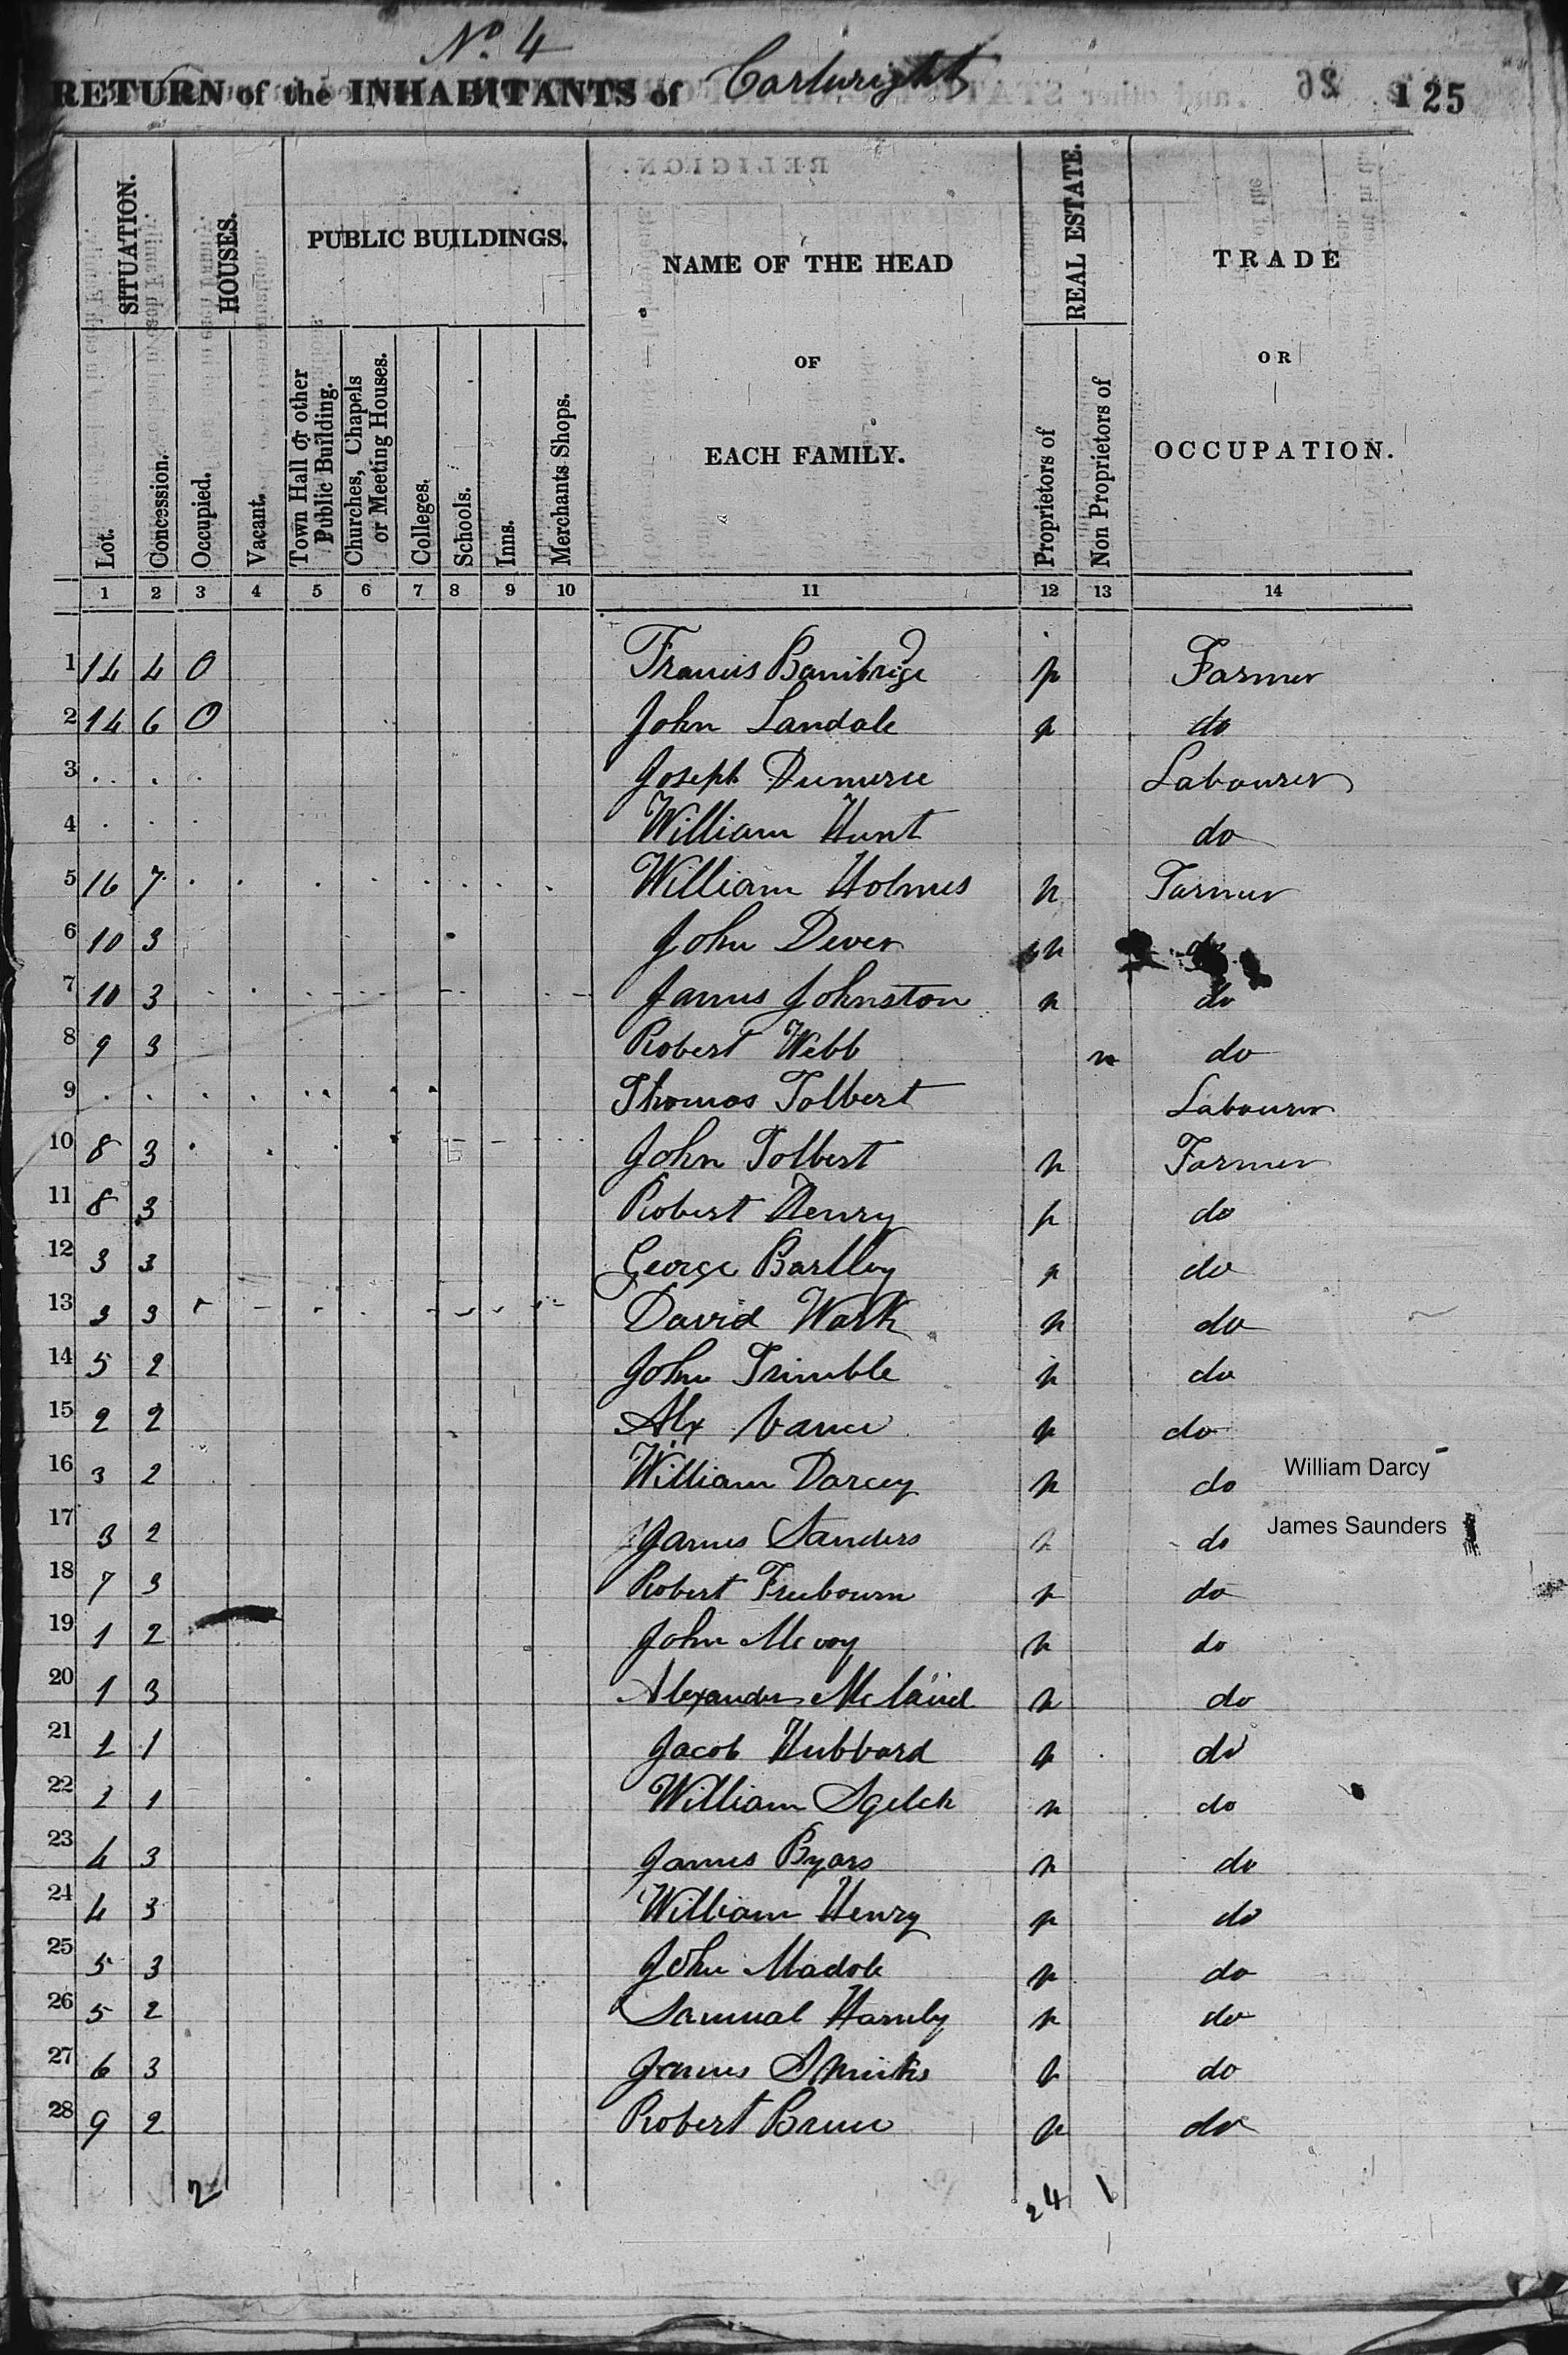 No. 4
RETURN of the INHABITANTS of Cartwright 125
SITUATION.
HOUSES.
PUBLIC BUILDINGS.
NAME OF THE HEAD
OF
EACH FAMILY.
REAL ESTATE.
TRADE
OR
OCCUPATION.
Lot.
Concession.
Occupied.
Vacant.
Town Hall or other Public Building.
Churches, Chapels or Meeting Houses.
Colleges.
Schools.
Inns.
Merchants Shops.
Proprietors of
Non Proprietors of
1 2 3 4 5 6 7 8 9 10 11 12 13 14
1 14 4 0 Francis Bambrige p Farmer
2 14 6 0 John Landale p do
3 Joseph Labourer
4 William Hunt do
5 16 7 William Holmes p Farmer
6 10 3 John Dever p do
7 10 3 James Johnston p do
8 9 3 Robert Webb n do
9 Thomas Tolbert Labourer
10 8 3 John Tolbert p Farmer
11 8 3 Robert Henry p do
12 3 3 George Bartley p do
13 3 3 David Wark p do
14 5 2 John Trimble p do
15 2 2 Alx Vance p do
16 3 2 William Darcey p do William Darcy
17 3 2 James Sanders p do James Saunders
18 7 3 Robert Freebourn p do
19 1 2 John Mc voy p do
20 1 3 Alexander p do
21 2 1 Jacob Hubbard p do
22 2 1 William p do
23 4 3 James Byars p do
24 4 3 William Henry p do
25 5 3 John Madole p do
26 5 2 Samual Hamby p do
27 6 3 James p do
28 9 2 Robert Bruce p do
2 24 1